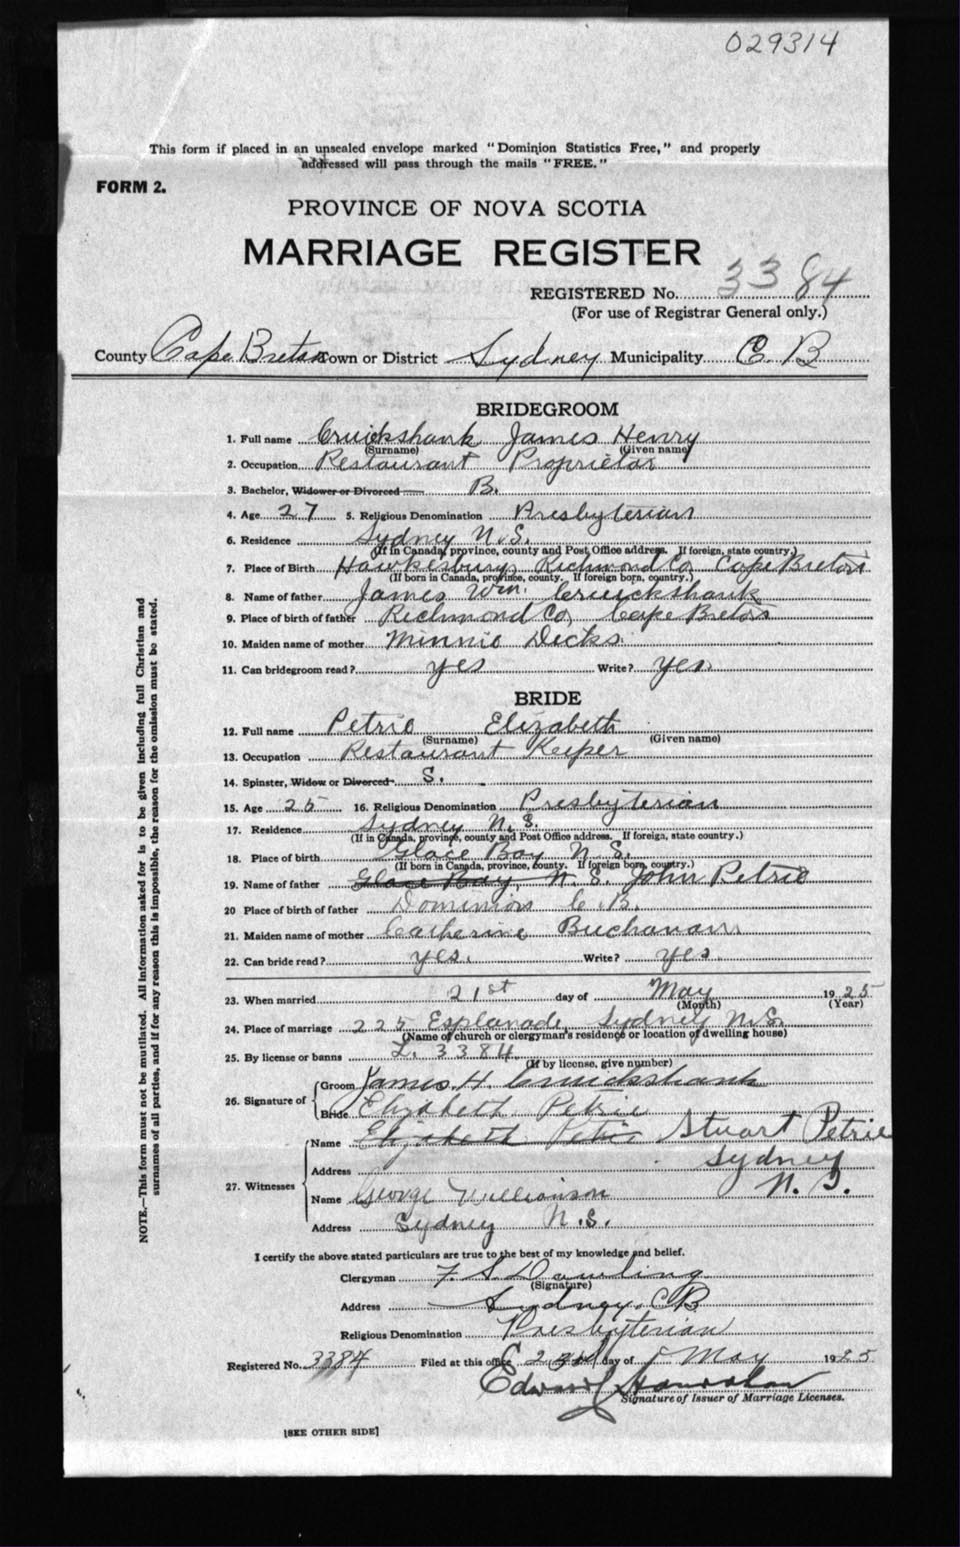 029314
This form if placed in an unsealed envelope marked "Dominion Statistics Free," and properly
addressed will pass through the mails "FREE."
FORM 2.
PROVINCE OF NOVA SCOTIA
MARRIAGE REGISTER
REGISTERED No. 3384
(For use of Registrar General only.)
County Cape Breton Town or District Sydney Municipality C. B
BRIDEGROOM
1. Full name Cruickshank James Henry
(Surname) (Given name)
2. Occupation Restaurant Proprietor
3. Bachelor, Widower or Divorced B.
4. Age 27 5. Religious Denomination Presbyterian
6. Residence Sydney N.S.
(If in Canada, province, county and Post Office address. If foreign, state country.)
7. Place of Birth Hawkesbury, Richmond Co, Cape Breton
(If born in Canada, province, county. If foreign born, country.)
8. Name of father James Wm. Cruickshank
9. Place of birth of father Richmond Co, Cape Breton
10. Maiden name of mother Minnie Decks
11. Can bridegroom read? yes Write? yes
BRIDE
12. Full name Petrie Elizabeth
(Surname) (Given name)
13. Occupation Restaurant Keeper
14. Spinster, Widow or Divorced S.
15. Age 25 16. Religious Denomination Presbyterian
17. Residence Sydney N.S.
(If in Canada, province, county and Post Office address. If foreign, state country.)
18. Place of birth Glace Bay N.S.
(If born in Canada, province, county. If foreign born, country.)
19. Name of father Glace Bay, N.S. John Petrie
20 Place of birth of father Dominion C.B.
21. Maiden name of mother Catherine Buchanan
22. Can bride read? yes. Write? yes.
23. When married 21st day of May 1925
(Month) (Year)
24. Place of marriage 225 Esplanade, Sydney N.S.
(Name of church or clergyman's residence or location of dwelling house)
25. By license or banns L. 3384
(If by license, give number)
26. Signature of Groom James H Cruickshank
Bride Elizabeth Petrie
27. Witnesses Name Elizabeth Petrie Stuart Petrie
Address Sydney
N.S.
Name George Williamson
Address Sydney N.S.
I certify the above stated particulars are true to the best of my knowledge and belief.
Clergyman F. S. Dowling
(Signature)
Address Sydney, CB
Religious Denomination Presbyterian
Registered No. 3384 Filed at this office 23rd day of May 1925
Edward
Signature of Issuer of Marriage Licenses.
[SEE OTHER SIDE]
NOTE.—This form must not be mutilated. All information asked for is to be given including full Christian and
surnames of all parties, and if for any reason this is impossible, the reason for the omission must be stated.